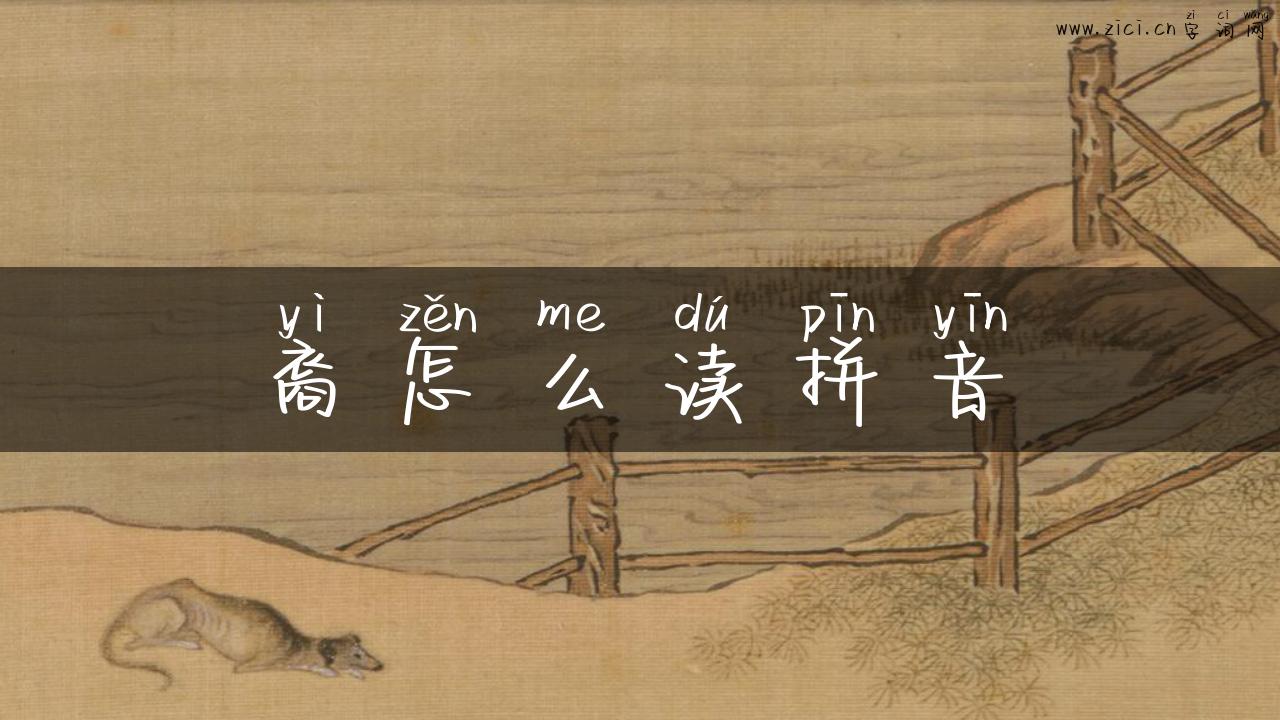 zì cí wǎng
www.zici.cn 字词网
yì zěn me dú pīn yīn
裔怎么读拼音